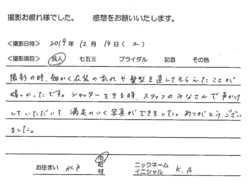 撮影お疲れ様でした。 感想をお願いいたします。
<撮影日時> 2019年 12月 14日( )
<撮影項目> 成人 七五三 ブライダル 記念 その他
撮影の時、細かく衣装の乱れや髪型を直してもらえたことが
嬉しかったです。シャッターをきる時、スタッフのみなさんで声かけ
していただいて満足のいく写真ができました。ありがとうござい
ました。
お住まい 水戸 市 町 村 ニックネーム イニシャル K.A